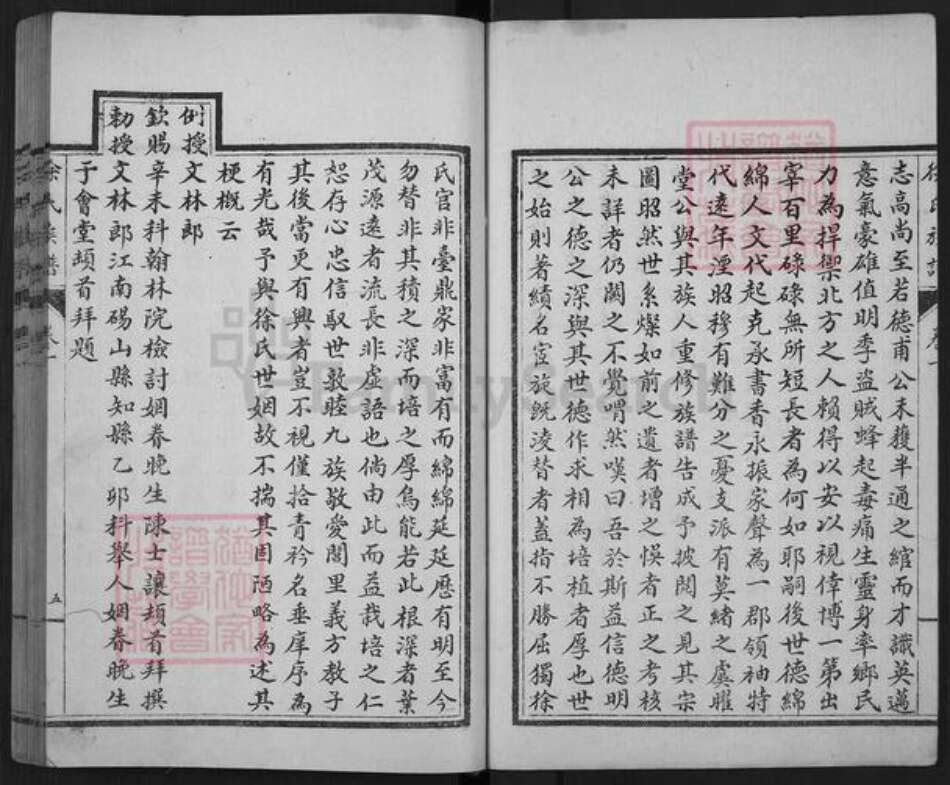 徐氏族譜 卷一
志高尚至若德甫公未獲半通之綰而才識英邁
意氣豪雄值明季盜賊蜂起毒痡生靈身率鄉民
力為捍禦北方之人賴得以安以視偉博一第出
宰百里碌碌無所短長者為何如耶嗣後世德綿
綿人文代起克承書香永振家聲為一郡領袖特
代遠年湮昭穆有難分之憂支派有莫緒之虞睢
堂公與其族人重修族譜告成予披閱之見其宗
圖昭然世系燦如前之遺者增之悞者正之考核
未詳者仍闕之不覺喟然嘆曰吾於斯益信德明
公之德之深與其世德作求相為培植者厚也世
之始則著績名宦旋旣淩替者蓋指不勝屈獨徐
氏官非臺鼎家非富有而綿綿延延歷有明至今
勿替非其積之深而培之厚烏能若此根深者葉
茂源遠者流長非虛語也倘由此而益栽培之仁
恕存心忠信馭世敦睦九族敬愛閭里義方教子
其後當更有興者豈不視僅拾青衿名垂庠序為
有光哉予與徐氏世姻故不揣其固陋略為述其
梗概云
例授文林郎
欽賜辛未科翰林院檢討姻眷晚生陳士讓頓首拜撰
勅授文林郎江南碭山縣知縣乙卯科舉人姻眷晚生
于會堂頓首拜題
徐氏族譜 卷一 五
FamilySearch